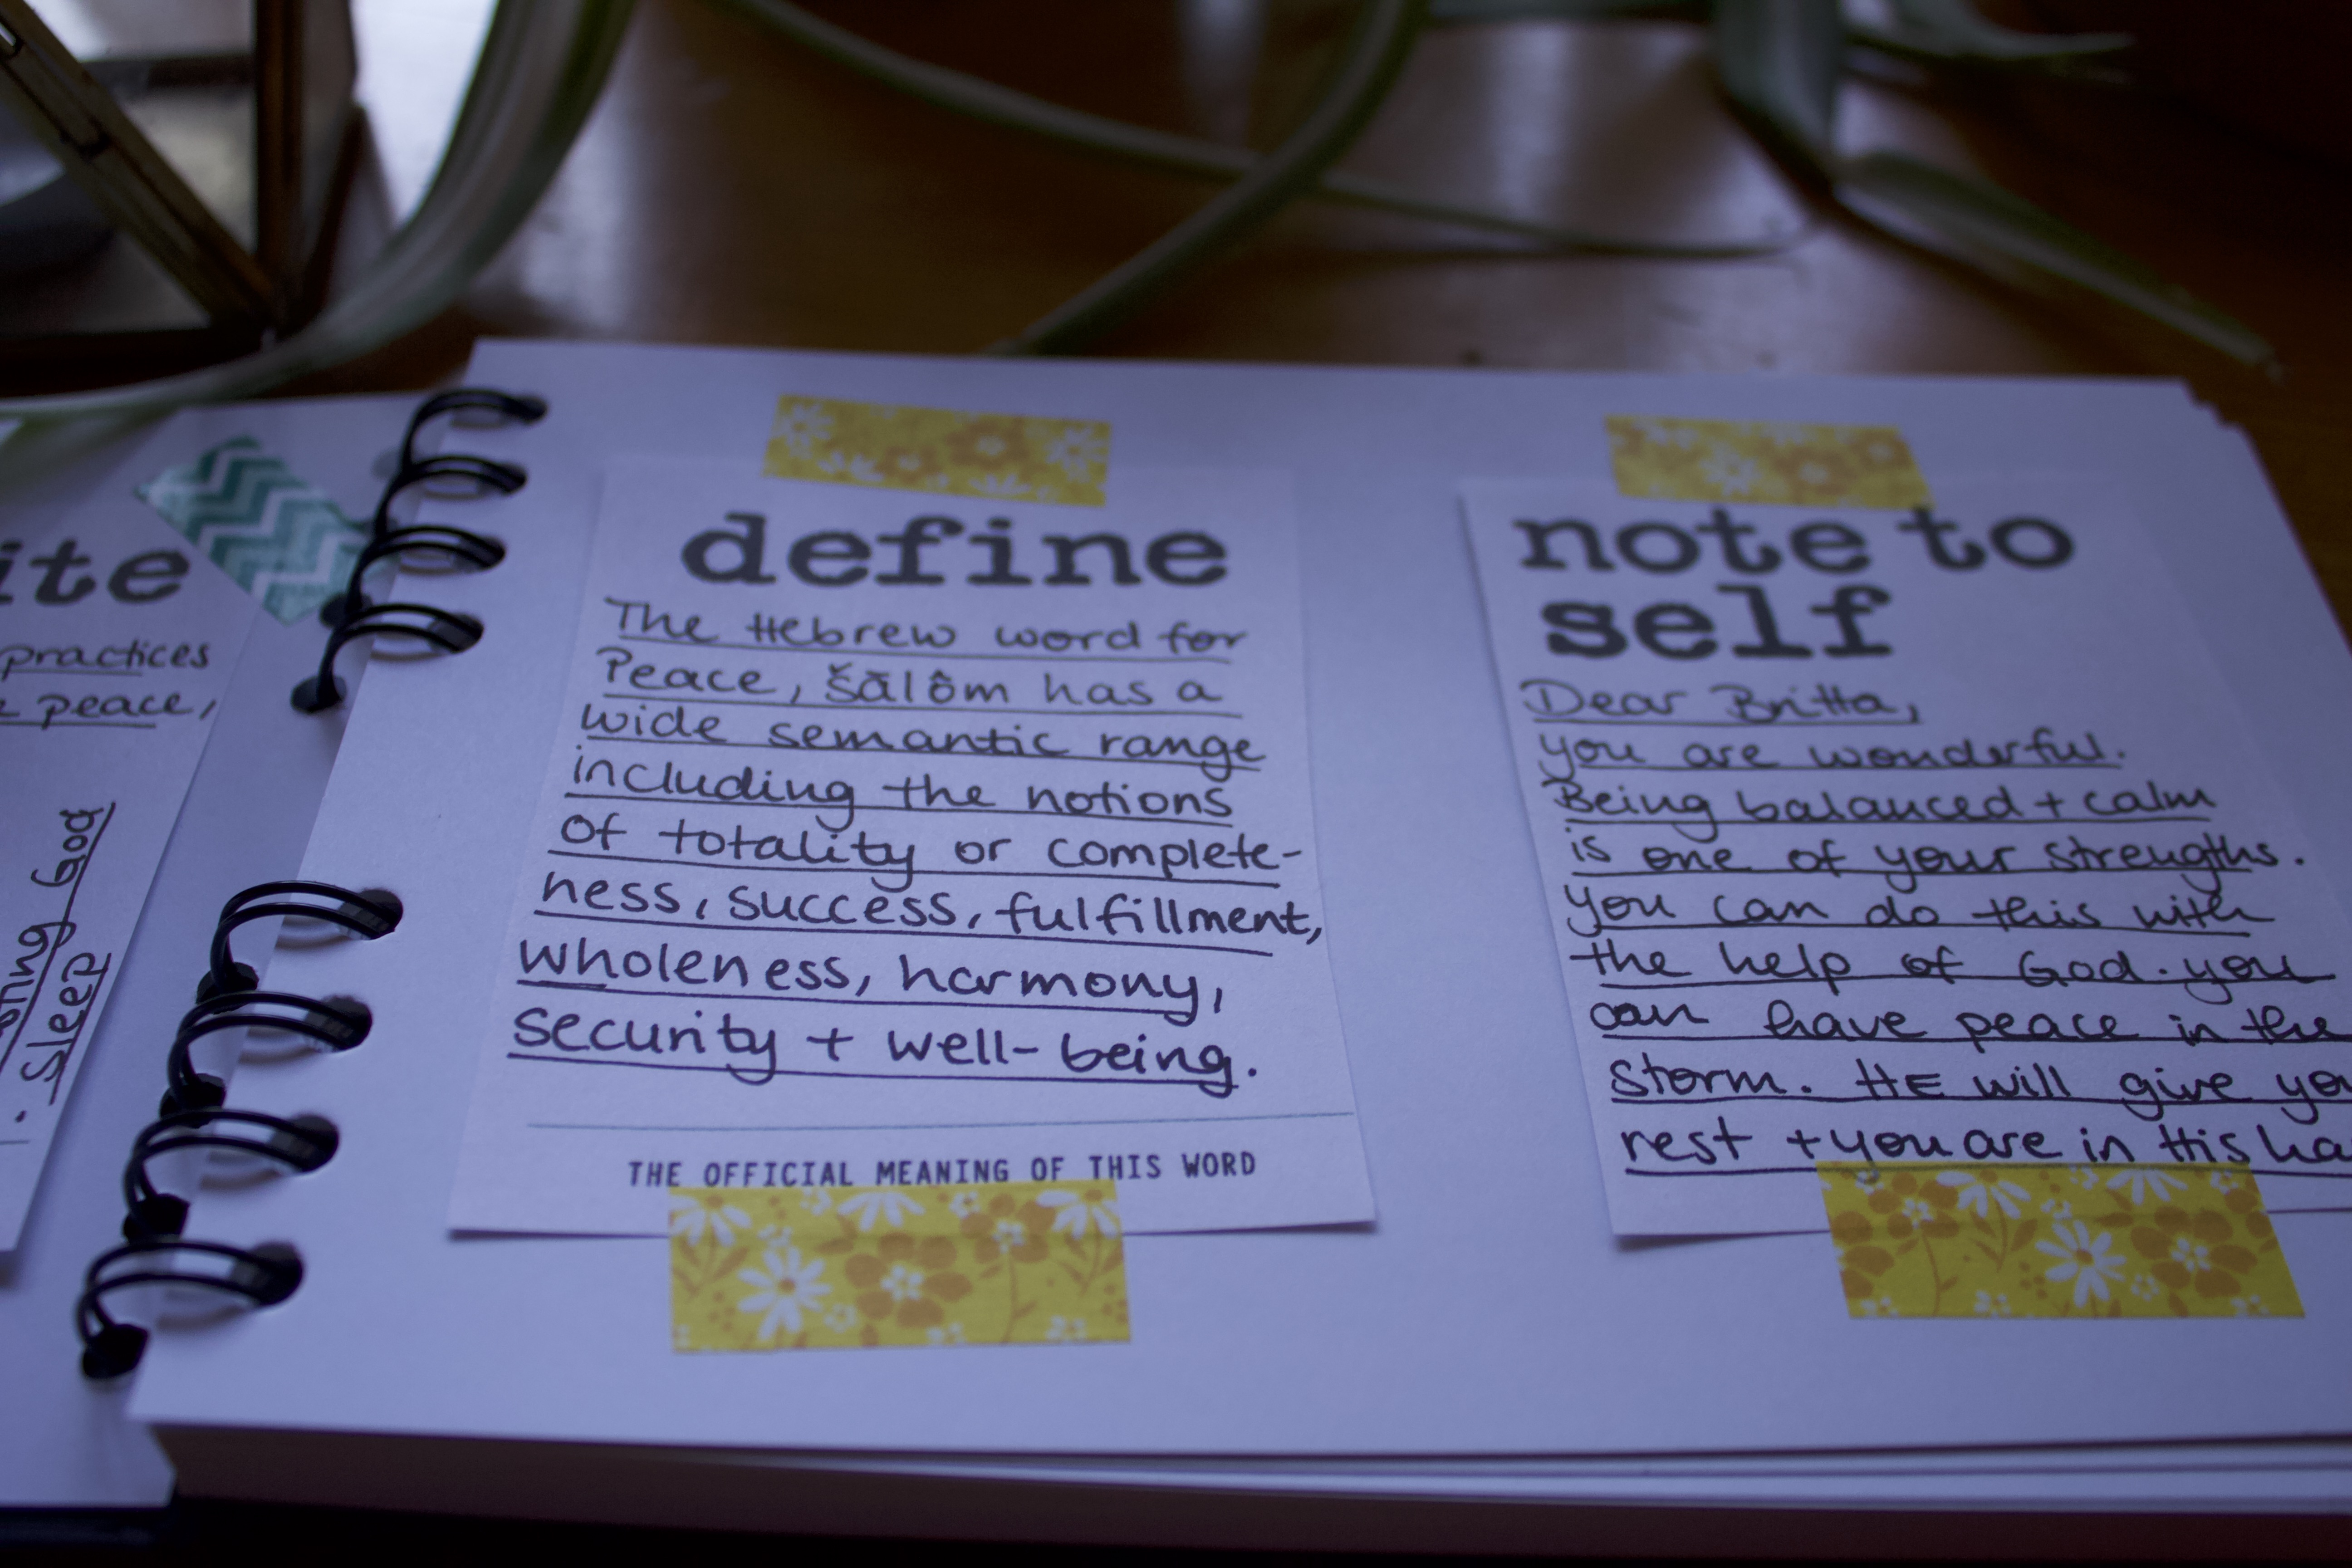 ite
practices
peace,
God
Sleep
define
The Hebrew word for
Peace, šālôm has a
wide semantic range
including the notions
of totality or complete-
ness, success, fulfillment,
wholeness, harmony,
security + well-being.
THE OFFICIAL MEANING OF THIS WORD
note to
self
Dear Britta,
you are wonderful.
Being balanced + calm
is one of your strengths.
you can do this with
the help of God. you
can have peace in the
storm. HE will give yo
rest + you are in His ha